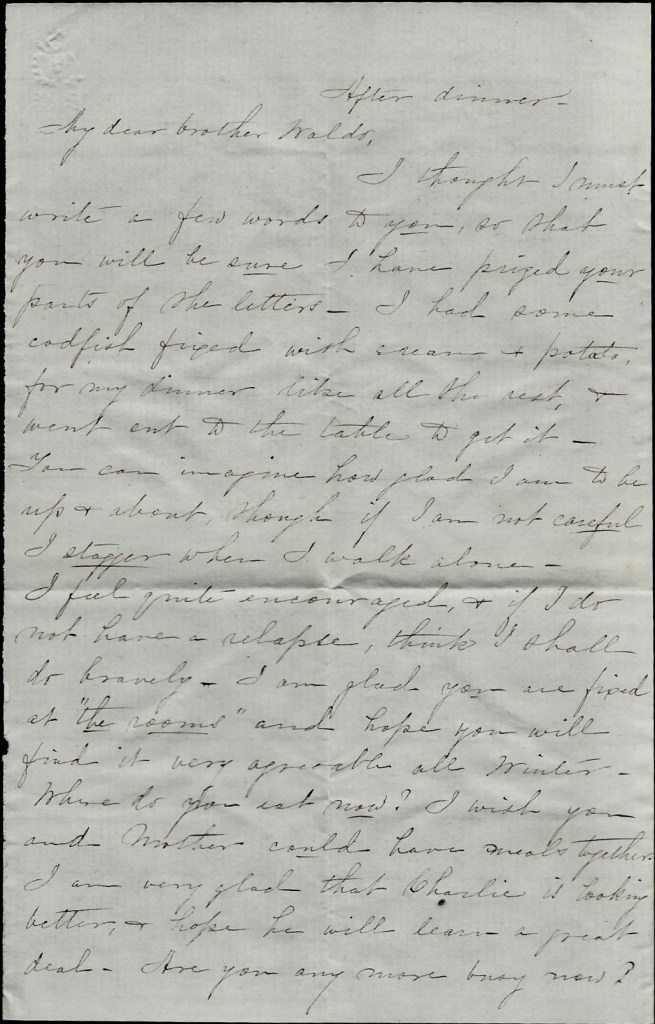 After dinner -
My dear brother Waldo,
I thought I must
write a few words to you, so that
you will be sure I have prized your
parts of the letters - I had some
codfish fixed with cream & potato,
for my dinner like all the rest, &
went out to the table to get it -
You can imagine how glad I am to be
up & about, though if I am not careful
I stagger when I walk alone -
I feel quite encouraged, & if I do
not have a relapse, think I shall
do bravely - I am glad you are fixed
at "the rooms" and hope you will
find it very agreeable all Winter -
Where do you eat now? I wish you
and Mother could have meals together.
I am very glad that Charlie is looking
better, & hope he will learn a great
deal - Are you any more busy now?